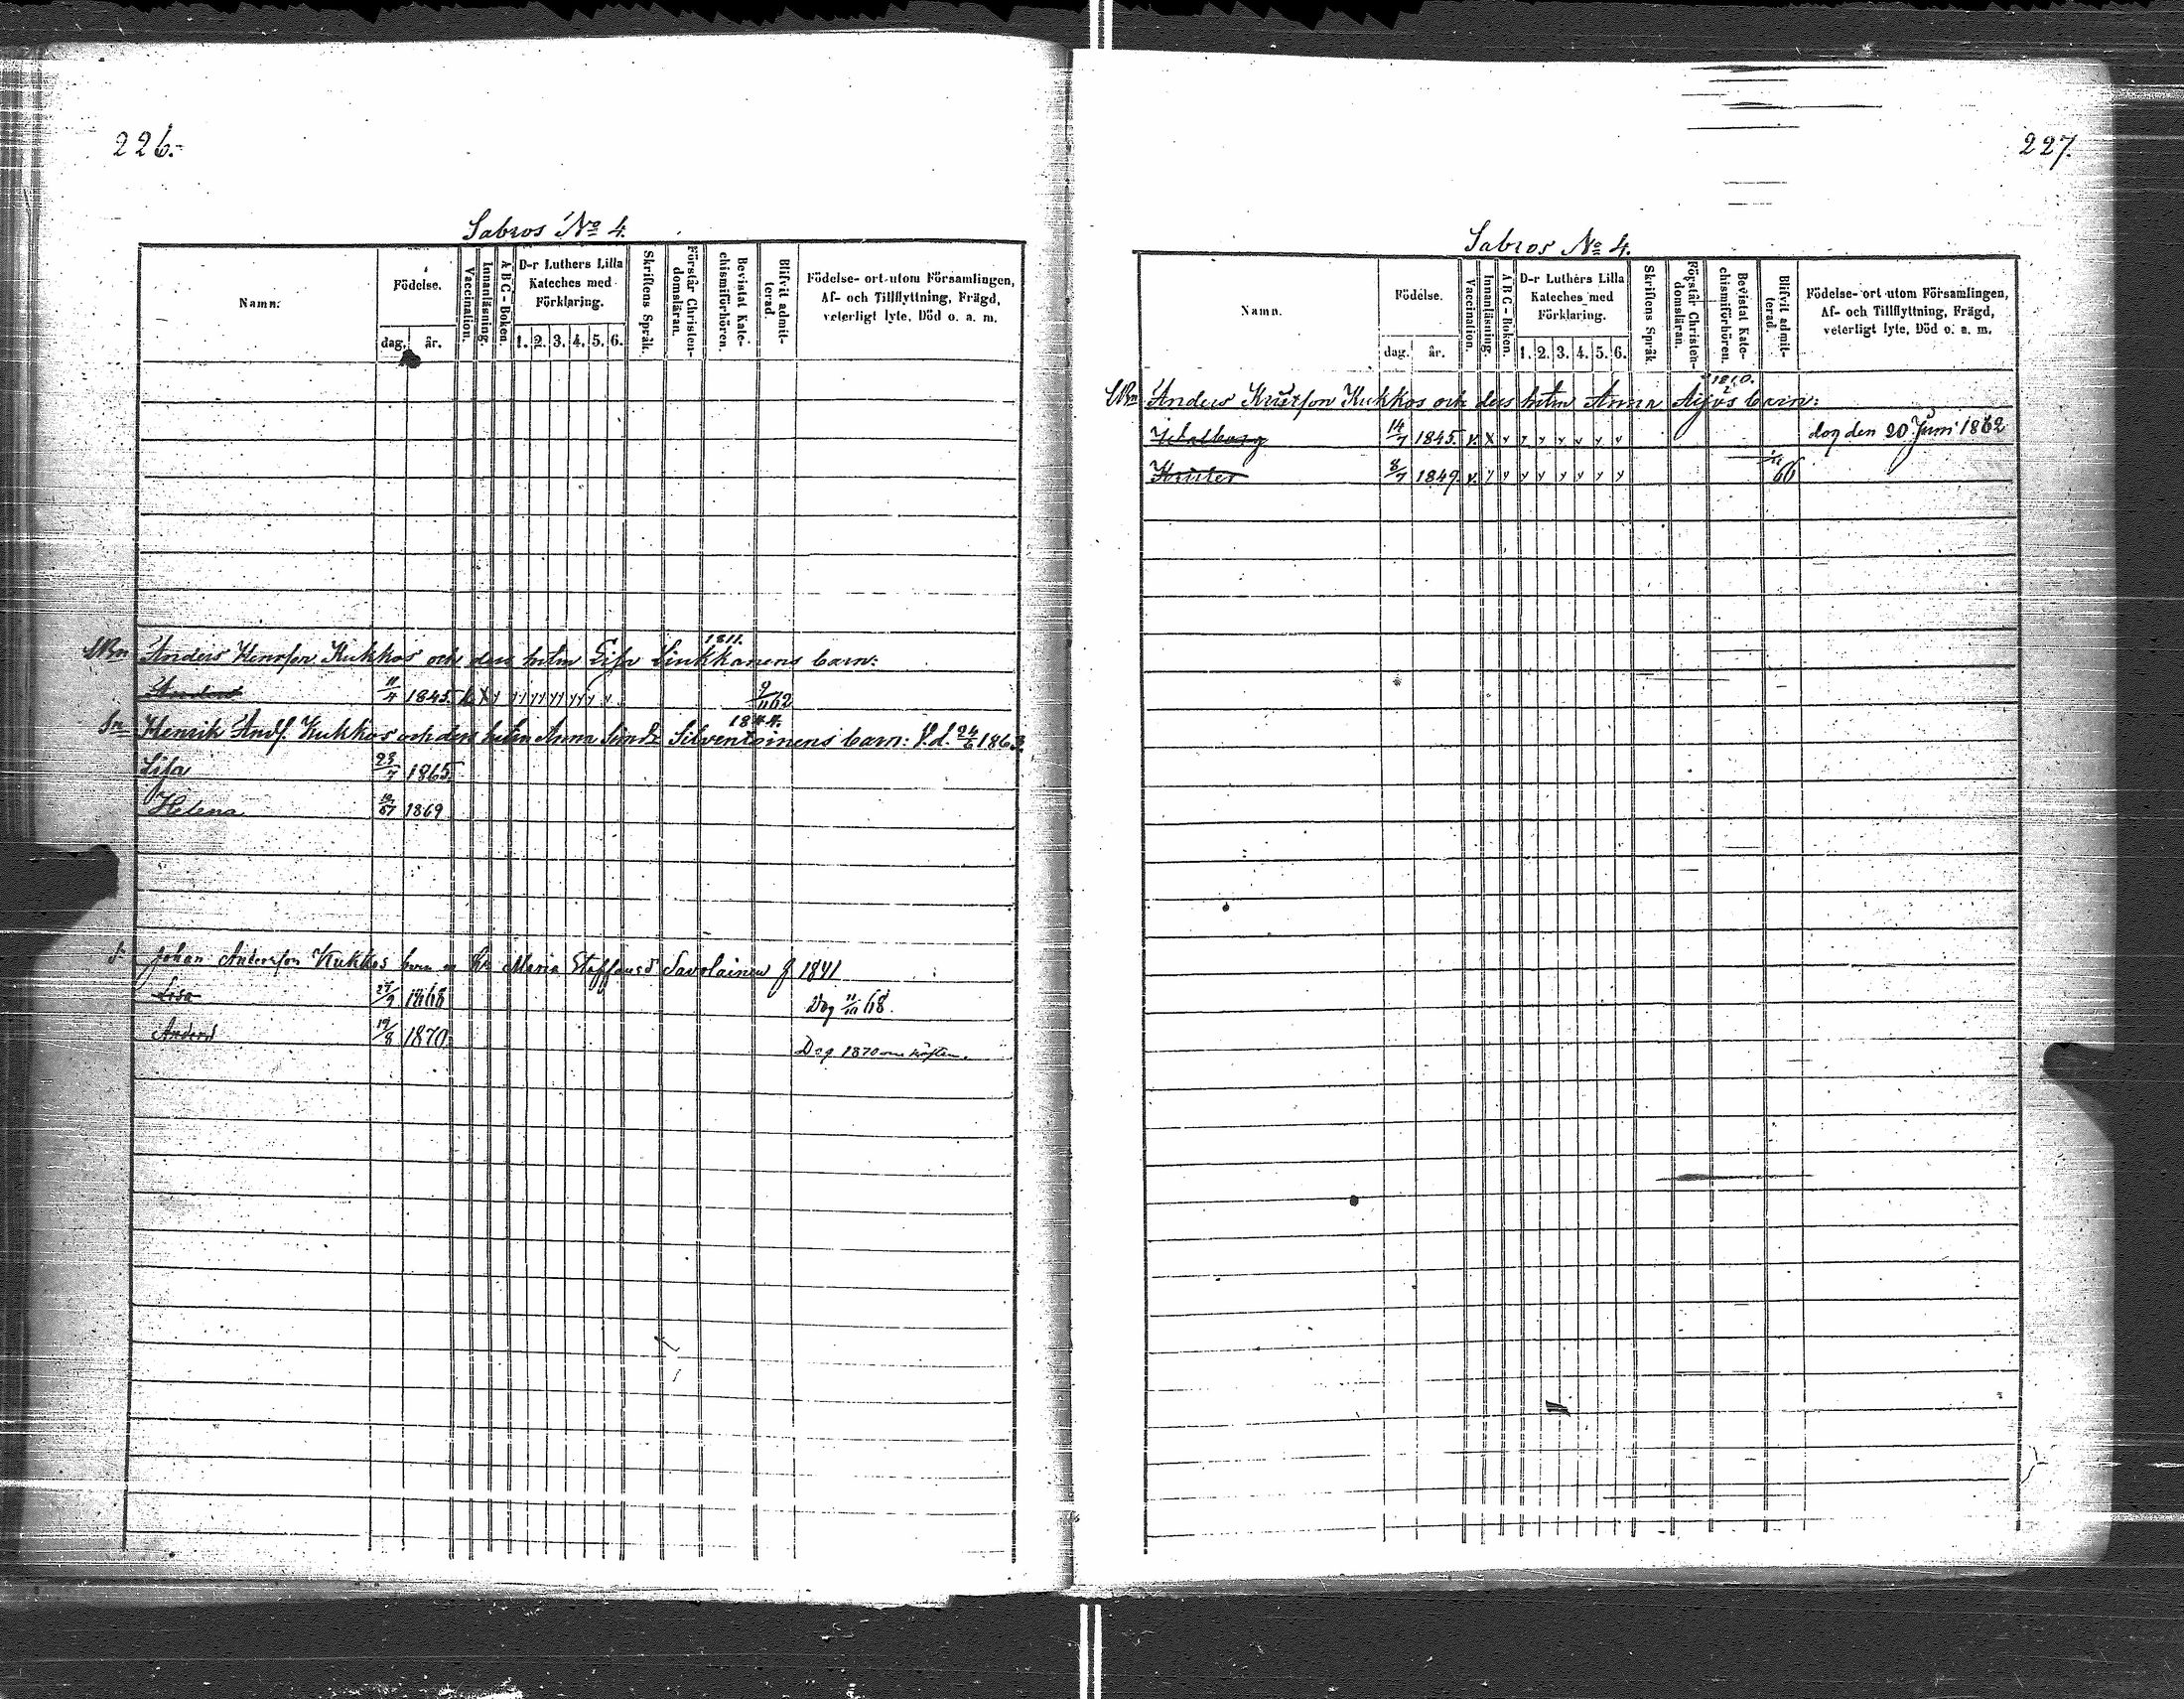 226.
Sabros No 4.
Namn. Födelse. Vaccination. Innanläsning. A B C - Boken. D-r Luthers Lilla Kateches med Förklaring. Skriftens Språk. Förstår Christendomsläran. Bevistat Katechismiförhören. Blifvit admitterad. Födelse- ort utom Församlingen, Af- och Tillflyttning, Frägd, veterligt lyte, Död o. a. m.
dag. år. 1. 2. 3. 4. 5. 6.
1811.
Anders Henrson Kukkos och dess hstru Lisa Sinkkanens barn:
Anders 11/4 1845 9/11 62
1844.
Henrik Andf. Kukkos och dess hstru Anna Simd. Silventoinens barn: V.d. 24/6 1863.
Lisa 23/7 1865.
Helena 1869
Johan Andersson Kukkos barn Maria Staffansd Savolainen f 1841
Lisa 27/9 1868 Dog 11/10 68.
Anders 19/8 1870 Dog 1870 om hösten.
227.
Sabros No 4.
Namn. Födelse. Vaccination. Innanläsning. A B C - Boken. D-r Luthers Lilla Kateches med Förklaring. Skriftens Språk. Förstår Christendomsläran. Bevistat Katechismiförhören. Blifvit admitterad. Födelse- ort utom Församlingen, Af- och Tillflyttning, Frägd, veterligt lyte, Död o. a. m.
dag. år. 1. 2. 3. 4. 5. 6.
1810.
Anders Krister­son Kukkos och dess hstru Anna Äijös barn:
Walborg 14/7 1845. dog den 20 Juni 1862
Krister 8/7 1849. 66